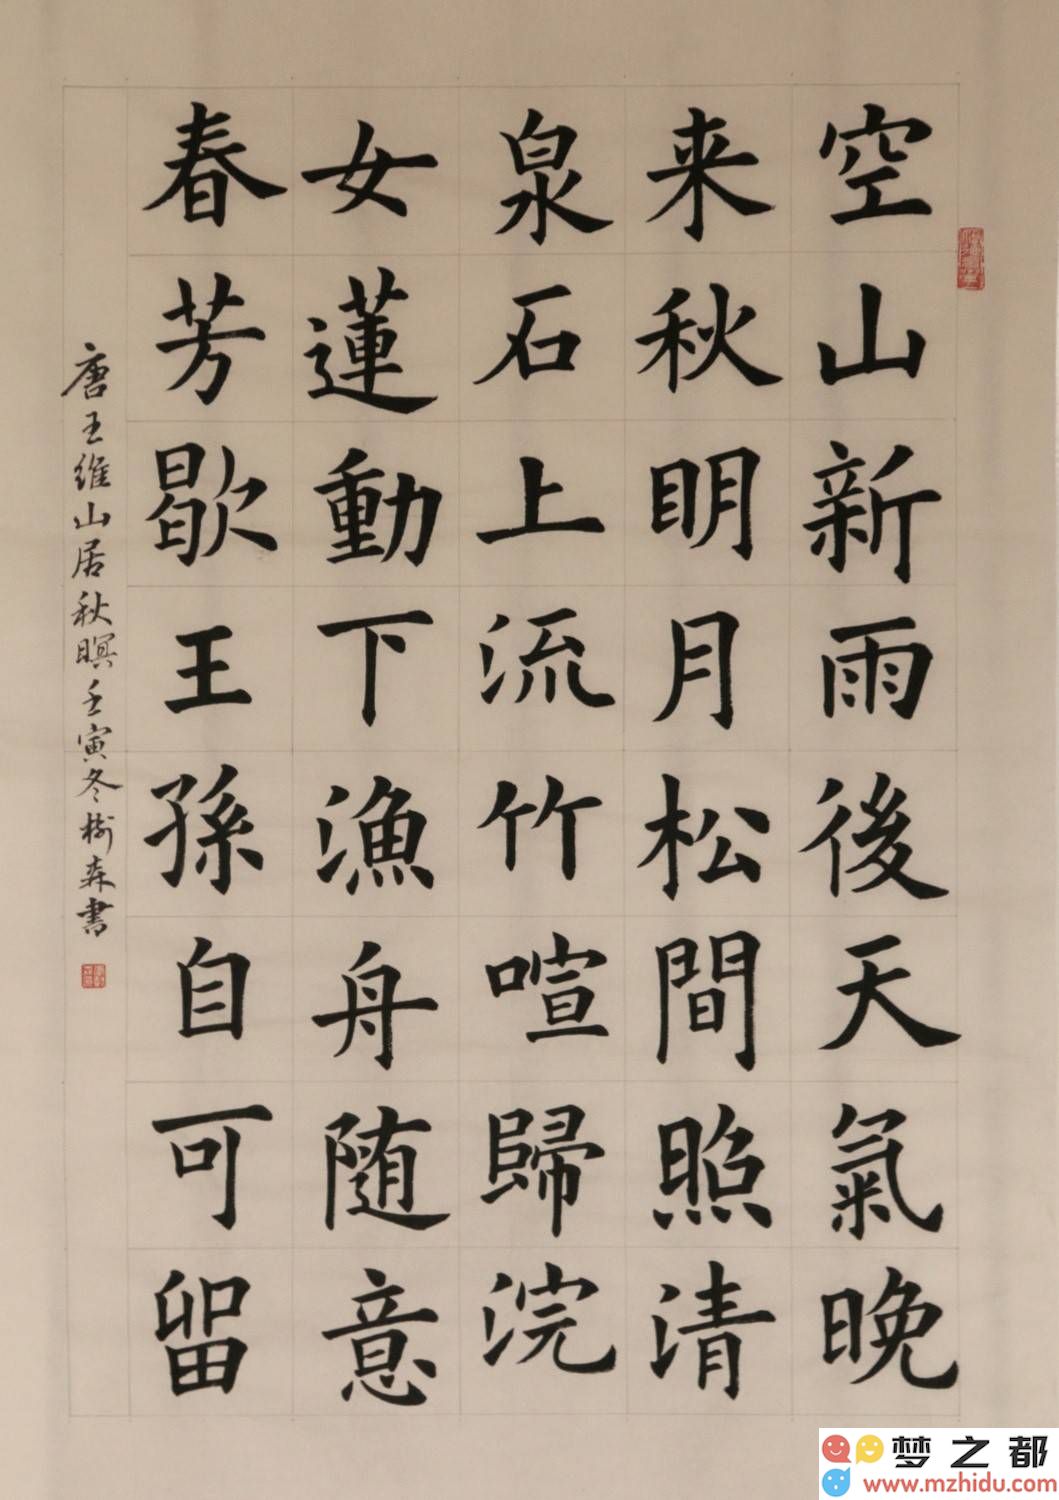 空山新雨後天氣晚
来秋明月松間照清
泉石上流竹喧歸浣
女蓮動下漁舟随意
春芳歇王孫自可留
唐王維山居秋暝壬寅冬樹森書
梦之都
www.mzhidu.com